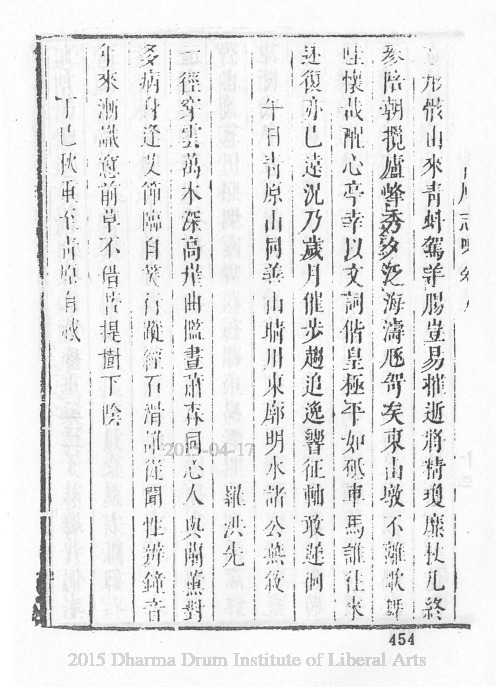 形骸山來青蚪駕羊腸豈易摧逝將精瓊靡杖凡終
陪朝攬廬峰秀夕泛海濤賀矣東山墩不離歌舞
懷哉醒心亭幸以文詞偕皇極平如砥車馬誰往來
赴復亦已遠況乃歲月催步趨追逸響征軸敢遲徊
午日青原山同善山晴川東廓明水諸公燕敘
羅洪先
一徑穿雲萬木深高崖曲檻晝蕭森同心人與蘭薰對
多病身逢艾節臨自笑行蹤經石滑誰從聞性辨鐘音
年來漸識愆前草不借菩提樹下陰
丁巳秋重至青原自
青原志略卷
2015-04-17
454
2015 Dharma Drum Institute of Liberal Arts